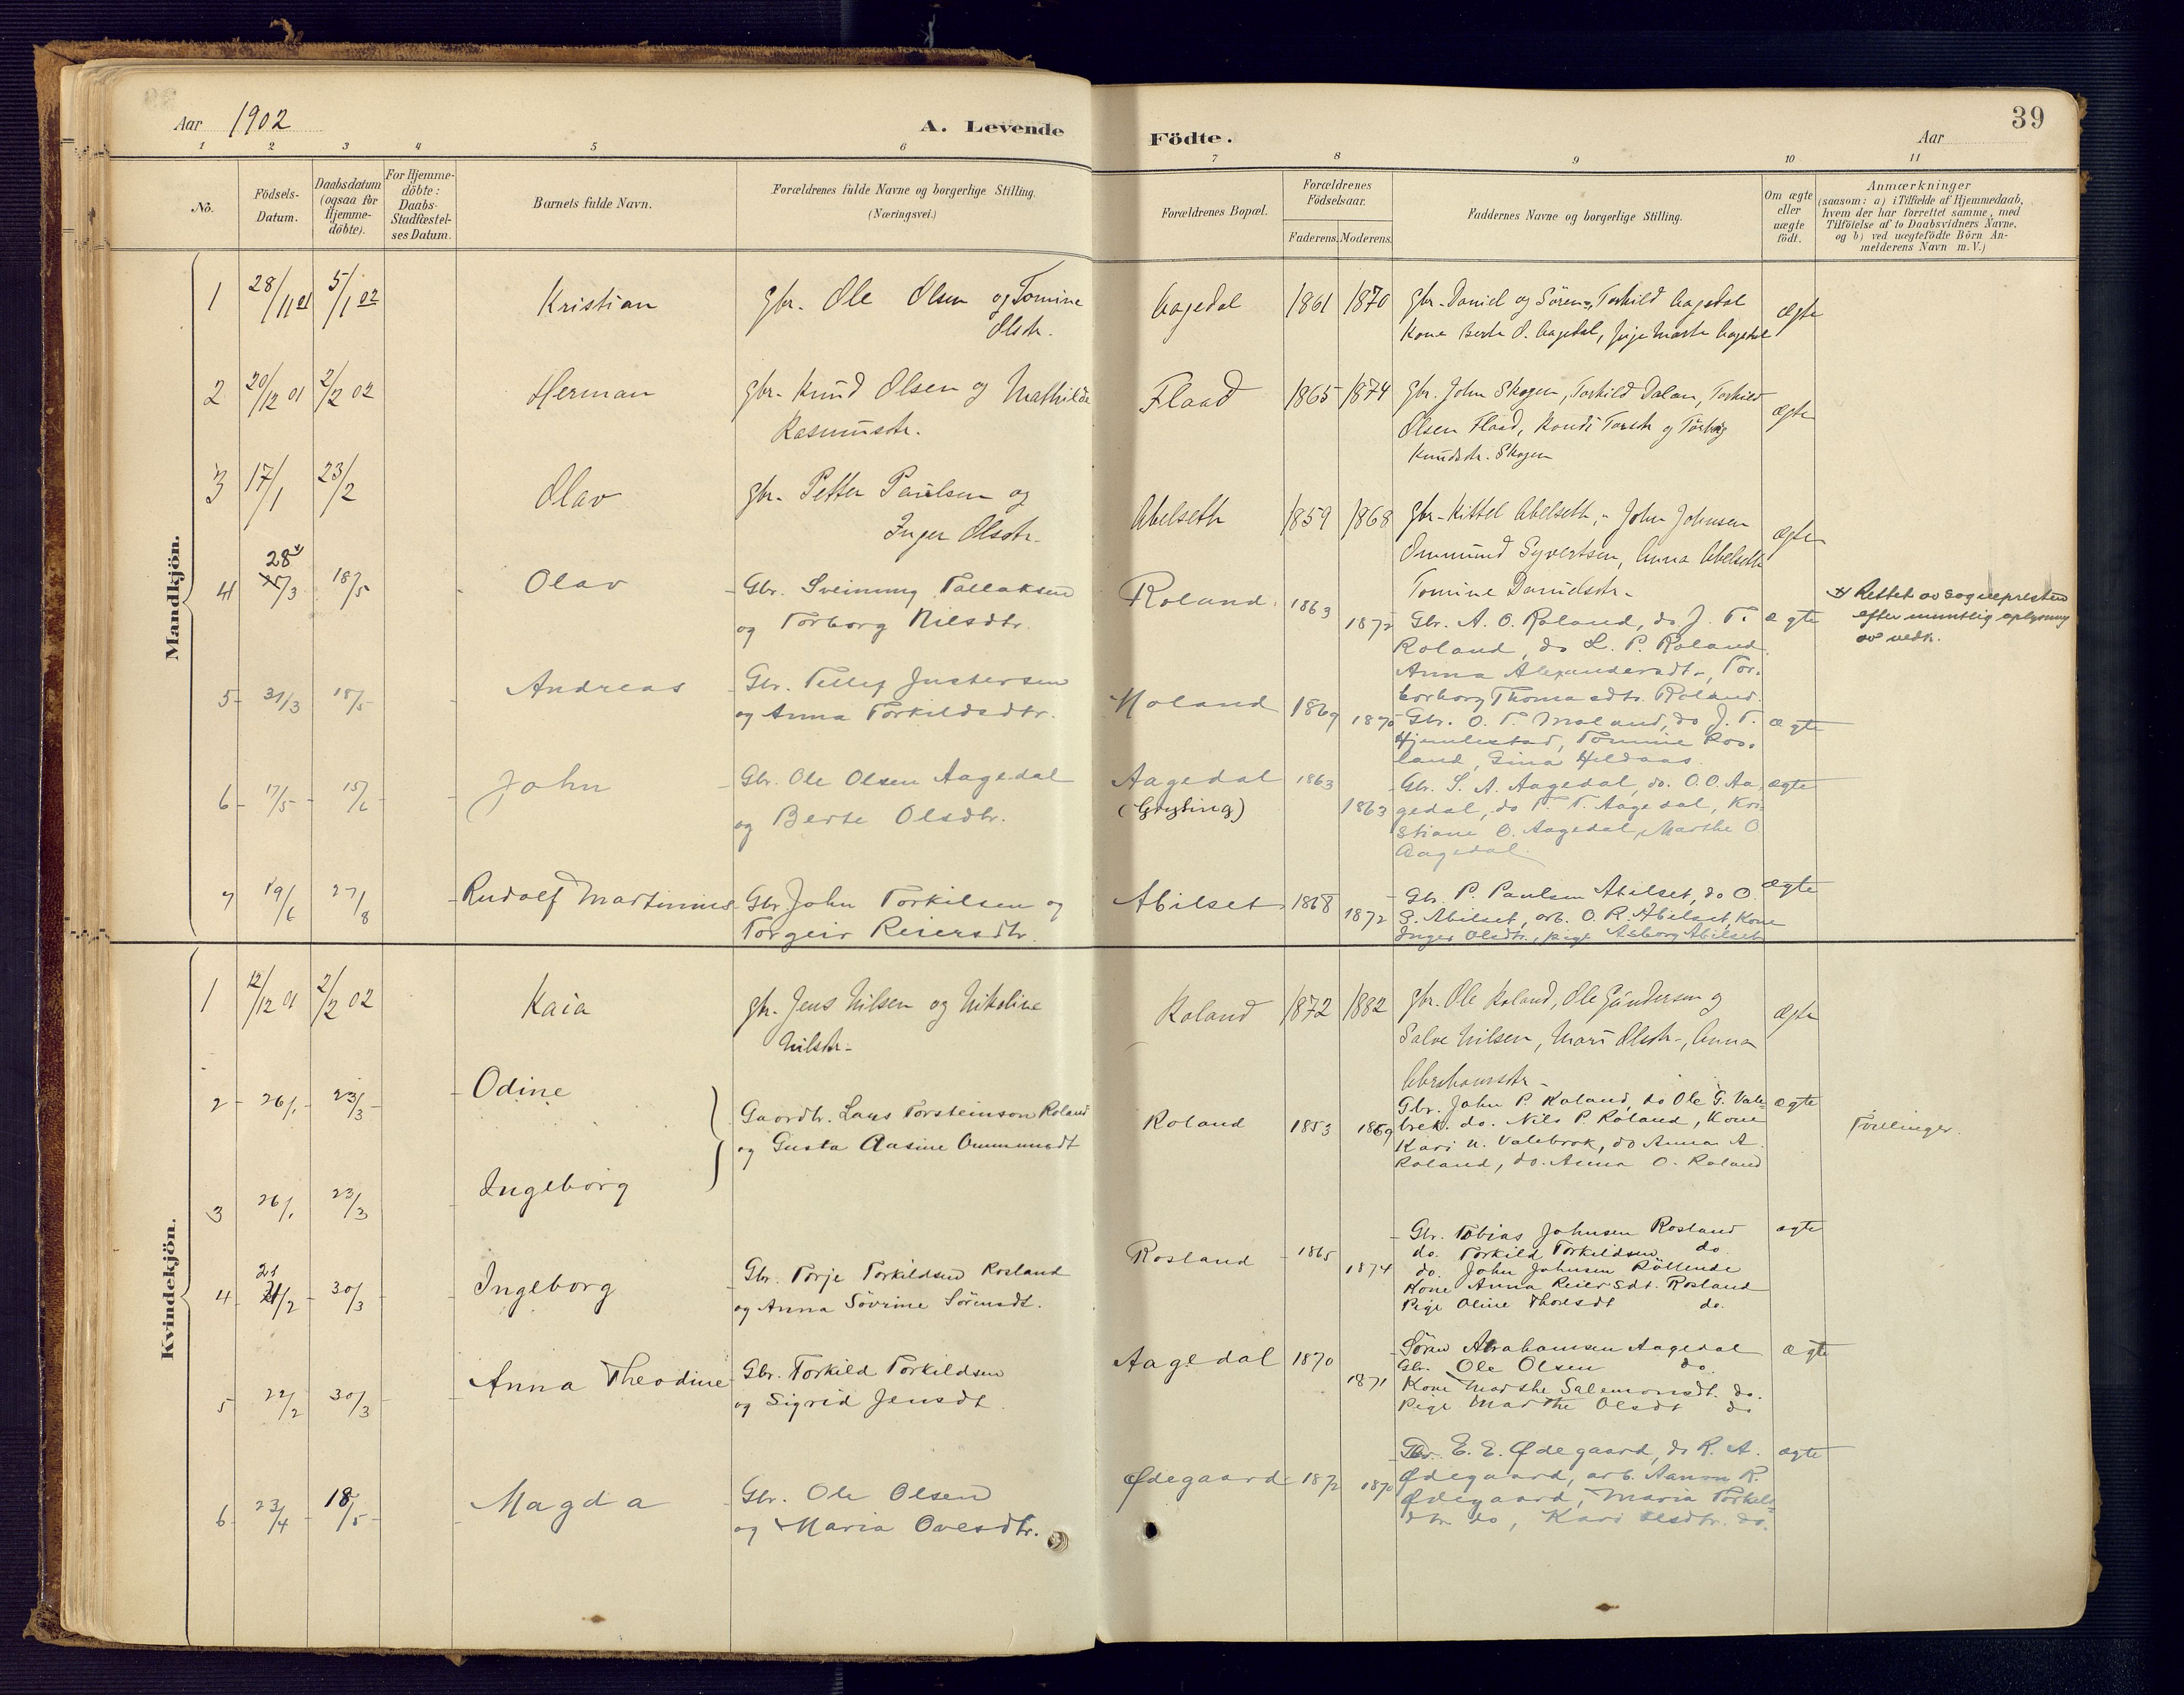 Aar 1902
A. Levende Födte.
39
Aar
1 2 3 4 5 6 7 8 9 10 11
Nö.
Födsels-Datum.
Daabsdatum (ogsaa for Hjemme-döbte).
For Hjemme-döbte: Daabs-Stadfæstel-ses Datum.
Barnets fulde Navn.
Forældrenes fulde Navne og borgerlige Stilling. (Næringsvei.)
Forældrenes Bopæl.
Forældrenes Födselsaar.
Faderens. Moderens.
Faddernes Navne og borgerlige Stilling.
Om ægte eller uægte födt.
Anmærkninger
(saasom: a) i Tilfælde af Hjemmedaab,
hvem der har forrettet samme, med
Tilföielse af to Daabsvidners Navne.
og b) ved uægtefödte Börn An-
melderens Navn m. V.)
Mandkjön.
1 28/11 01 5/1 02 Kristian Gbr. Ole Olsen og Tomine
Olsdtr.
Aagedal 1861 1870 Gbr. Daniel og Sören, Torkild Aagedal
Kone Berte O. Aagedal, Pige Marte Aagedal
ægte
2 20/12 01 2/2 02 Herman Gbr. Knud Olsen og Mathilde
Rasmusdtr.
Flaad 1865 1874 Gbr. John Skogen, Torkild Dalen, Torkild
Olsen Flaad,
Knudsdtr. Skogen
ægte
3 17/1 23/2 Olav Gbr. Petter Paulsen og
Inger Olsdtr.
Abelseth 1859 1868 Gbr. Kittel Abelseth, " John Johnsen
Ommund Syvertsen, Anna Abelseth
Tomine Danielsdtr.
ægte
4 28x /3 18/5 Olav Gbr. Sveinung Tallaksen
og Torborg Nilsdtr.
Roland 1863 1872 Gbr. A. O. Roland, do J. T.
Roland, do L. P. Roland
Anna Alexandersdt., Tor-
borborg Thomasdtr. Roland.
ægte
x) Rettet av sognepresten
efter muntlig oplysning
av vedk.
5 31/3 18/5 Andreas Gbr. Tellef Justersen
og Anna Torkildsdtr.
Moland 1869 1870 Gbr. O. T. Moland, do J. T.
Hjemlestad, Tomine Ros-
land, Gina Heldaas.
ægte
6 17/5 15/6 John Gbr. Ole Olsen Aagedal
og Berte Olsdtr.
Aagedal
(Gryting)
1863 1863 Gbr. S. A. Aagedal, do. O. O. Aa-
gedal, do T. T. Aagedal, Kri-
stiane O. Aagedal, Marthe O.
Aagedal.
ægte
7 19/6 27/8 Rudolf Martinius Gbr John Torkilsen og
Torgeir Reiersdtr.
Abilset 1868 1872 Gbr. P. Paulsen Abilset, do O.
S. Abilset, arb. O. R. Abilset, Kone
Inger Olsdtr., pige Asborg Abilset
ægte
Kvindekjön.
1 12/12 01 2/2 02 Kaia Gbr. Jens Nilsen og Nikoline
Nilsdtr.
Roland 1872 1882 Gbr. Ole Roland, Ole Gundersen og
Salve Nilsen, Mari Olsdtr., Anna
Abrahamsdtr.
ægte
2 26/1 23/3 Odine
Gaardbr. Lars Torsteinson Roland
og Gusta Aasine Ommundt
Roland 1853 1869 Gbr. John P. Roland, do Ole G. Vale-
brok. do. Nils P. Roland, Kone
Kari N. Valebrok, do Anna A.
Roland, do. Anna O. Roland
ægte
Tvillinger.
3 26/1 23/3 Ingeborg
4 21/2 30/3 Ingeborg Gbr. Torje Torkildsen Rosland
og Anna Sövrine Sörensdt.
Rosland 1865 1874 Gbr. Tobias Johnsen Rosland
do. Torkild Torkildsen do.
do. John Johnsen Röllende
Kone Anna Reiersdt. Rosland
Pige Oline Thoresdt do.
ægte
5 22/2 30/3 Anna Theodine Gbr. Torkild Torkildsen
og Sigrid Jensdt.
Aagedal 1870 1871 Sören Abrahamsen Aagedal
Gbr. Ole Olsen do.
Kone Marthe Salemonsdt. do.
Pige Marthe Olsdt do
ægte
6 23/4 18/5 Magda Gbr. Ole Olsen
og Maria Ovesdtr.
Ødegaard 1872 1870 Gbr. E. E. Ødegaard, do R. A.
Ødegaard, arb. Aanon R.
Ødegaard, Maria Torkels-
dtr. do, Kari Olsdtr. do.
ægte